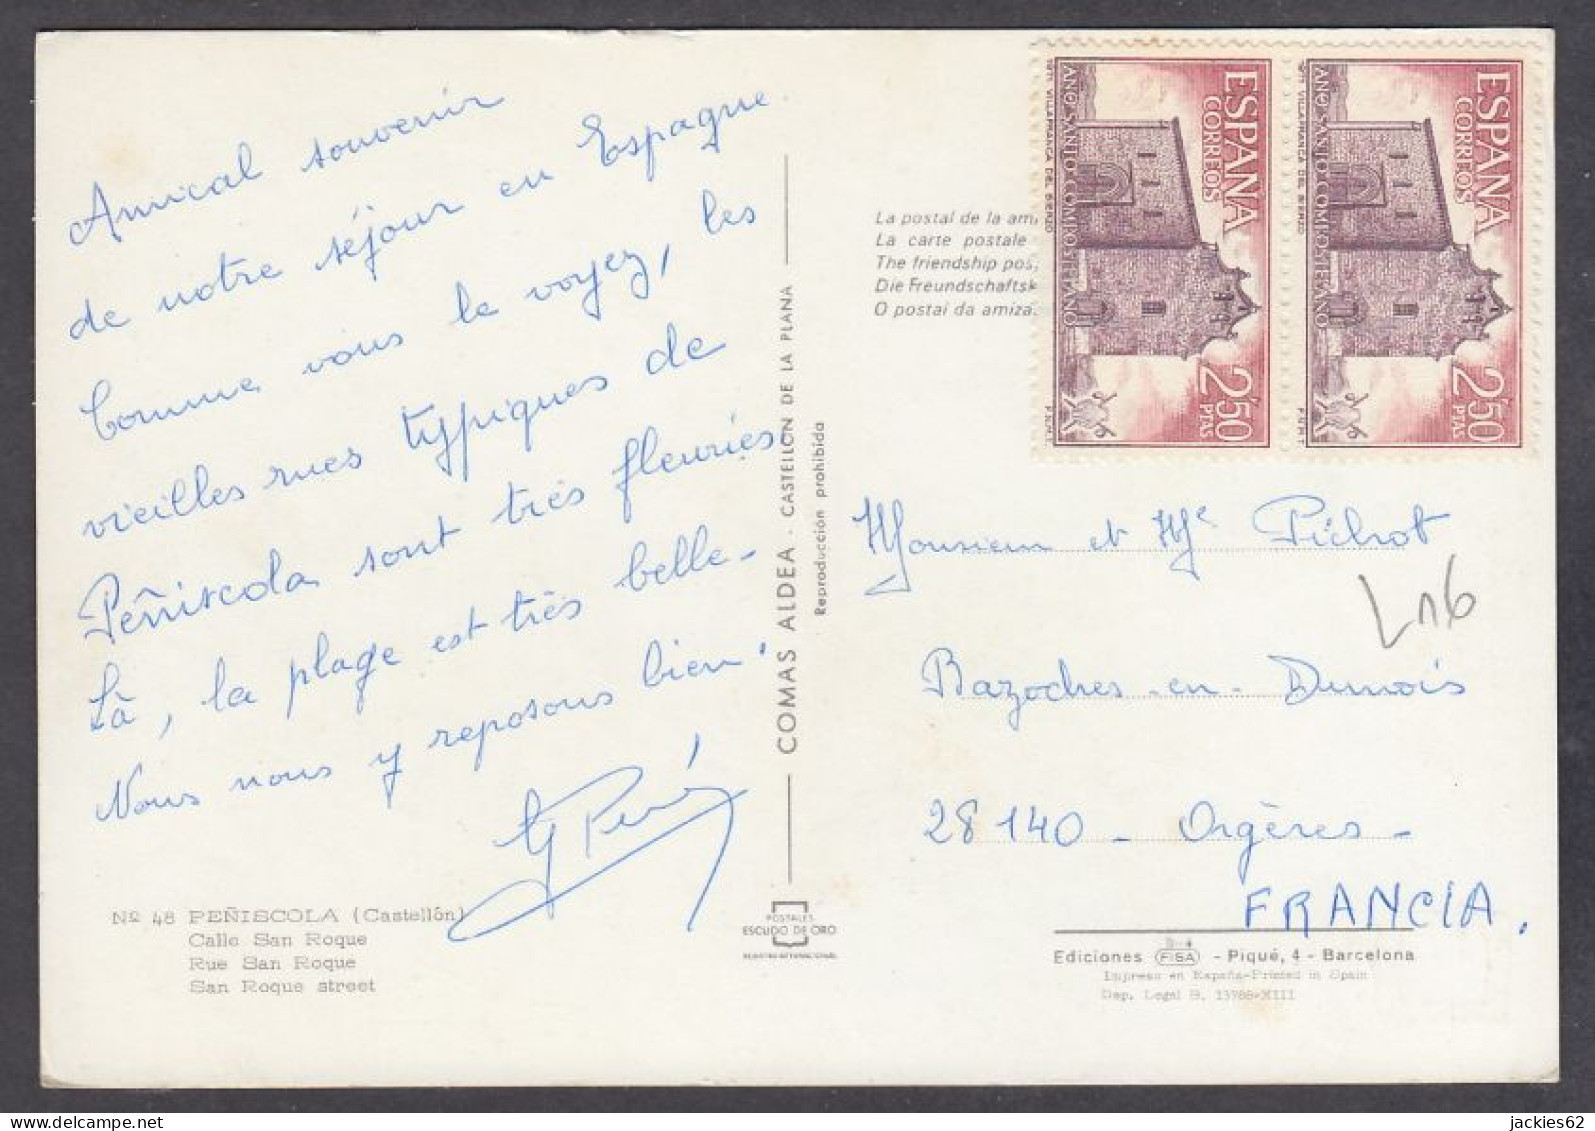 Amical souvenir
de notre séjour en Espagne
Comme vous le voyez, les
vieilles rues typiques de
Peñiscola sont très fleuries.
Là, la plage est très belle -
Nous nous y reposons bien !
Nº 48 PEÑISCOLA (Castellón)
Calle San Roque
Rue San Roque
San Roque street
COMAS ALDEA - CASTELLÓN DE LA PLANA
Reproducción prohibida
POSTALES
ESCUDO DE ORO
La postal de la ami
La carte postale
The friendship pos
Die Freundschaftsk
O postai da amiza
ESPAÑA
CORREOS
AÑO SANTO COMPOSTELANO
1971 VILLAFRANCA DEL BIERZO
2'50
PTAS
F.N.M.T.
ESPAÑA
CORREOS
AÑO SANTO COMPOSTELANO
1971 VILLAFRANCA DEL BIERZO
2'50
PTAS
F.N.M.T.
Monsieur et Me Pichot
L 16
Bazoches-en-Dunois
28140 - Orgères -
FRANCIA.
Ediciones FISA - Piqué, 4 - Barcelona
Impreso en España-Printed in Spain
Dep. Legal B. 13988-XIII
jackies62